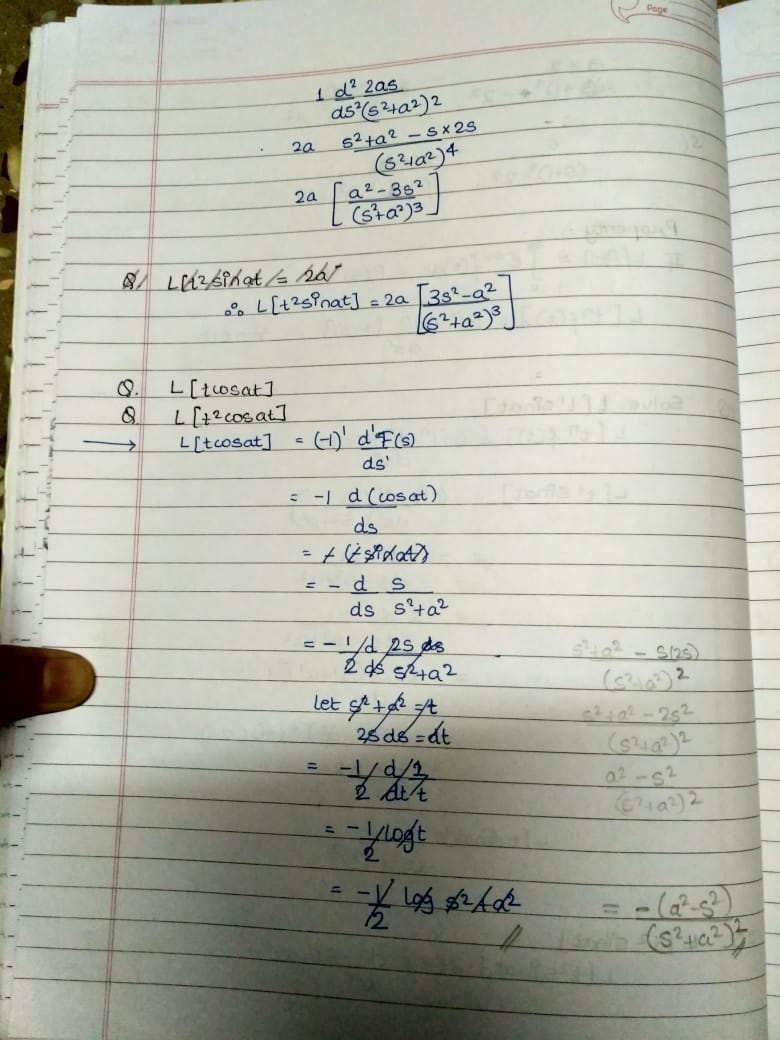 Page
1 d² 2as
ds² (s²+a²)2
2a s²+a² - s×2s
(s²+a²)⁴
2a [a² - 3s²
(s²+a²)³]
Q/ L[t²sinat] = 2a
∴ L[t²sinat] = 2a [3s²-a²
(s²+a²)³]
Q. L[tcosat]
Q. L[t²cosat]
→ L[tcosat] = (-1)¹ d¹F(s)
ds¹
= -1 d (cosat)
ds
= - d s
ds s²+a²
= -1 d 2s ds
2 ds s²+a²
let s²+a² = t
2s ds = dt
= -1 d 1
2 dt t
= -1 logt
2
= -1 log s²+a²
2
s²+a² - s(2s)
(s²+a²)²
s²+a² - 2s²
(s²+a²)²
a² - s²
(s²+a²)²
= -(a²-s²)
(s²+a²)²